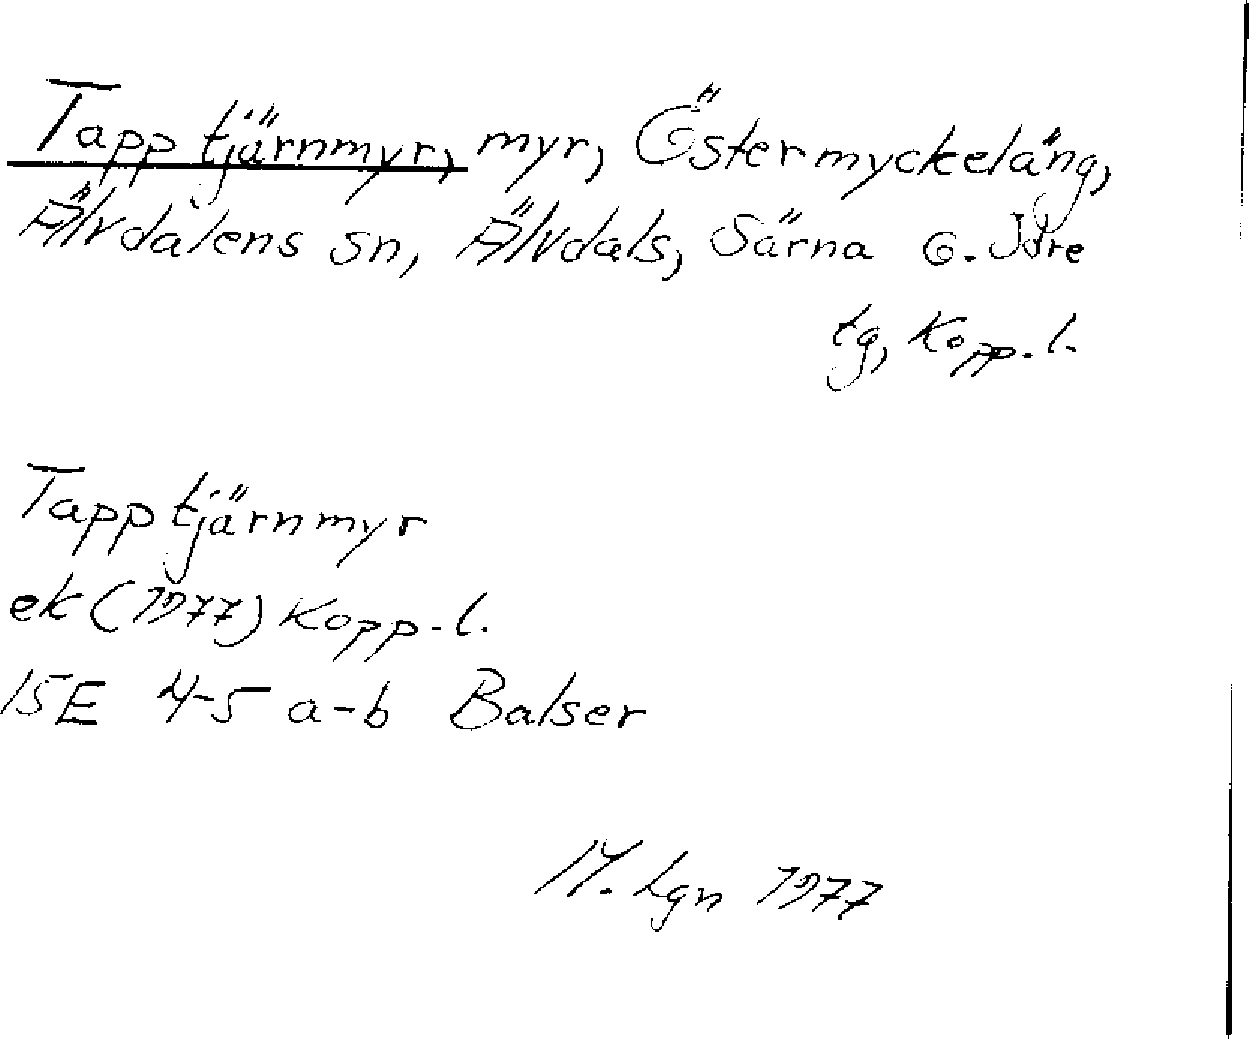 Tapptjärnmyr, myr, Östermyckeläng,
Älvdalens sn, Älvdals, Särna o. Idre
tg, Kopp. l.
Tapptjärnmyr
ek (1977) Kopp. l.
15E 4-5 a-b Balser
M. Lgn 1977